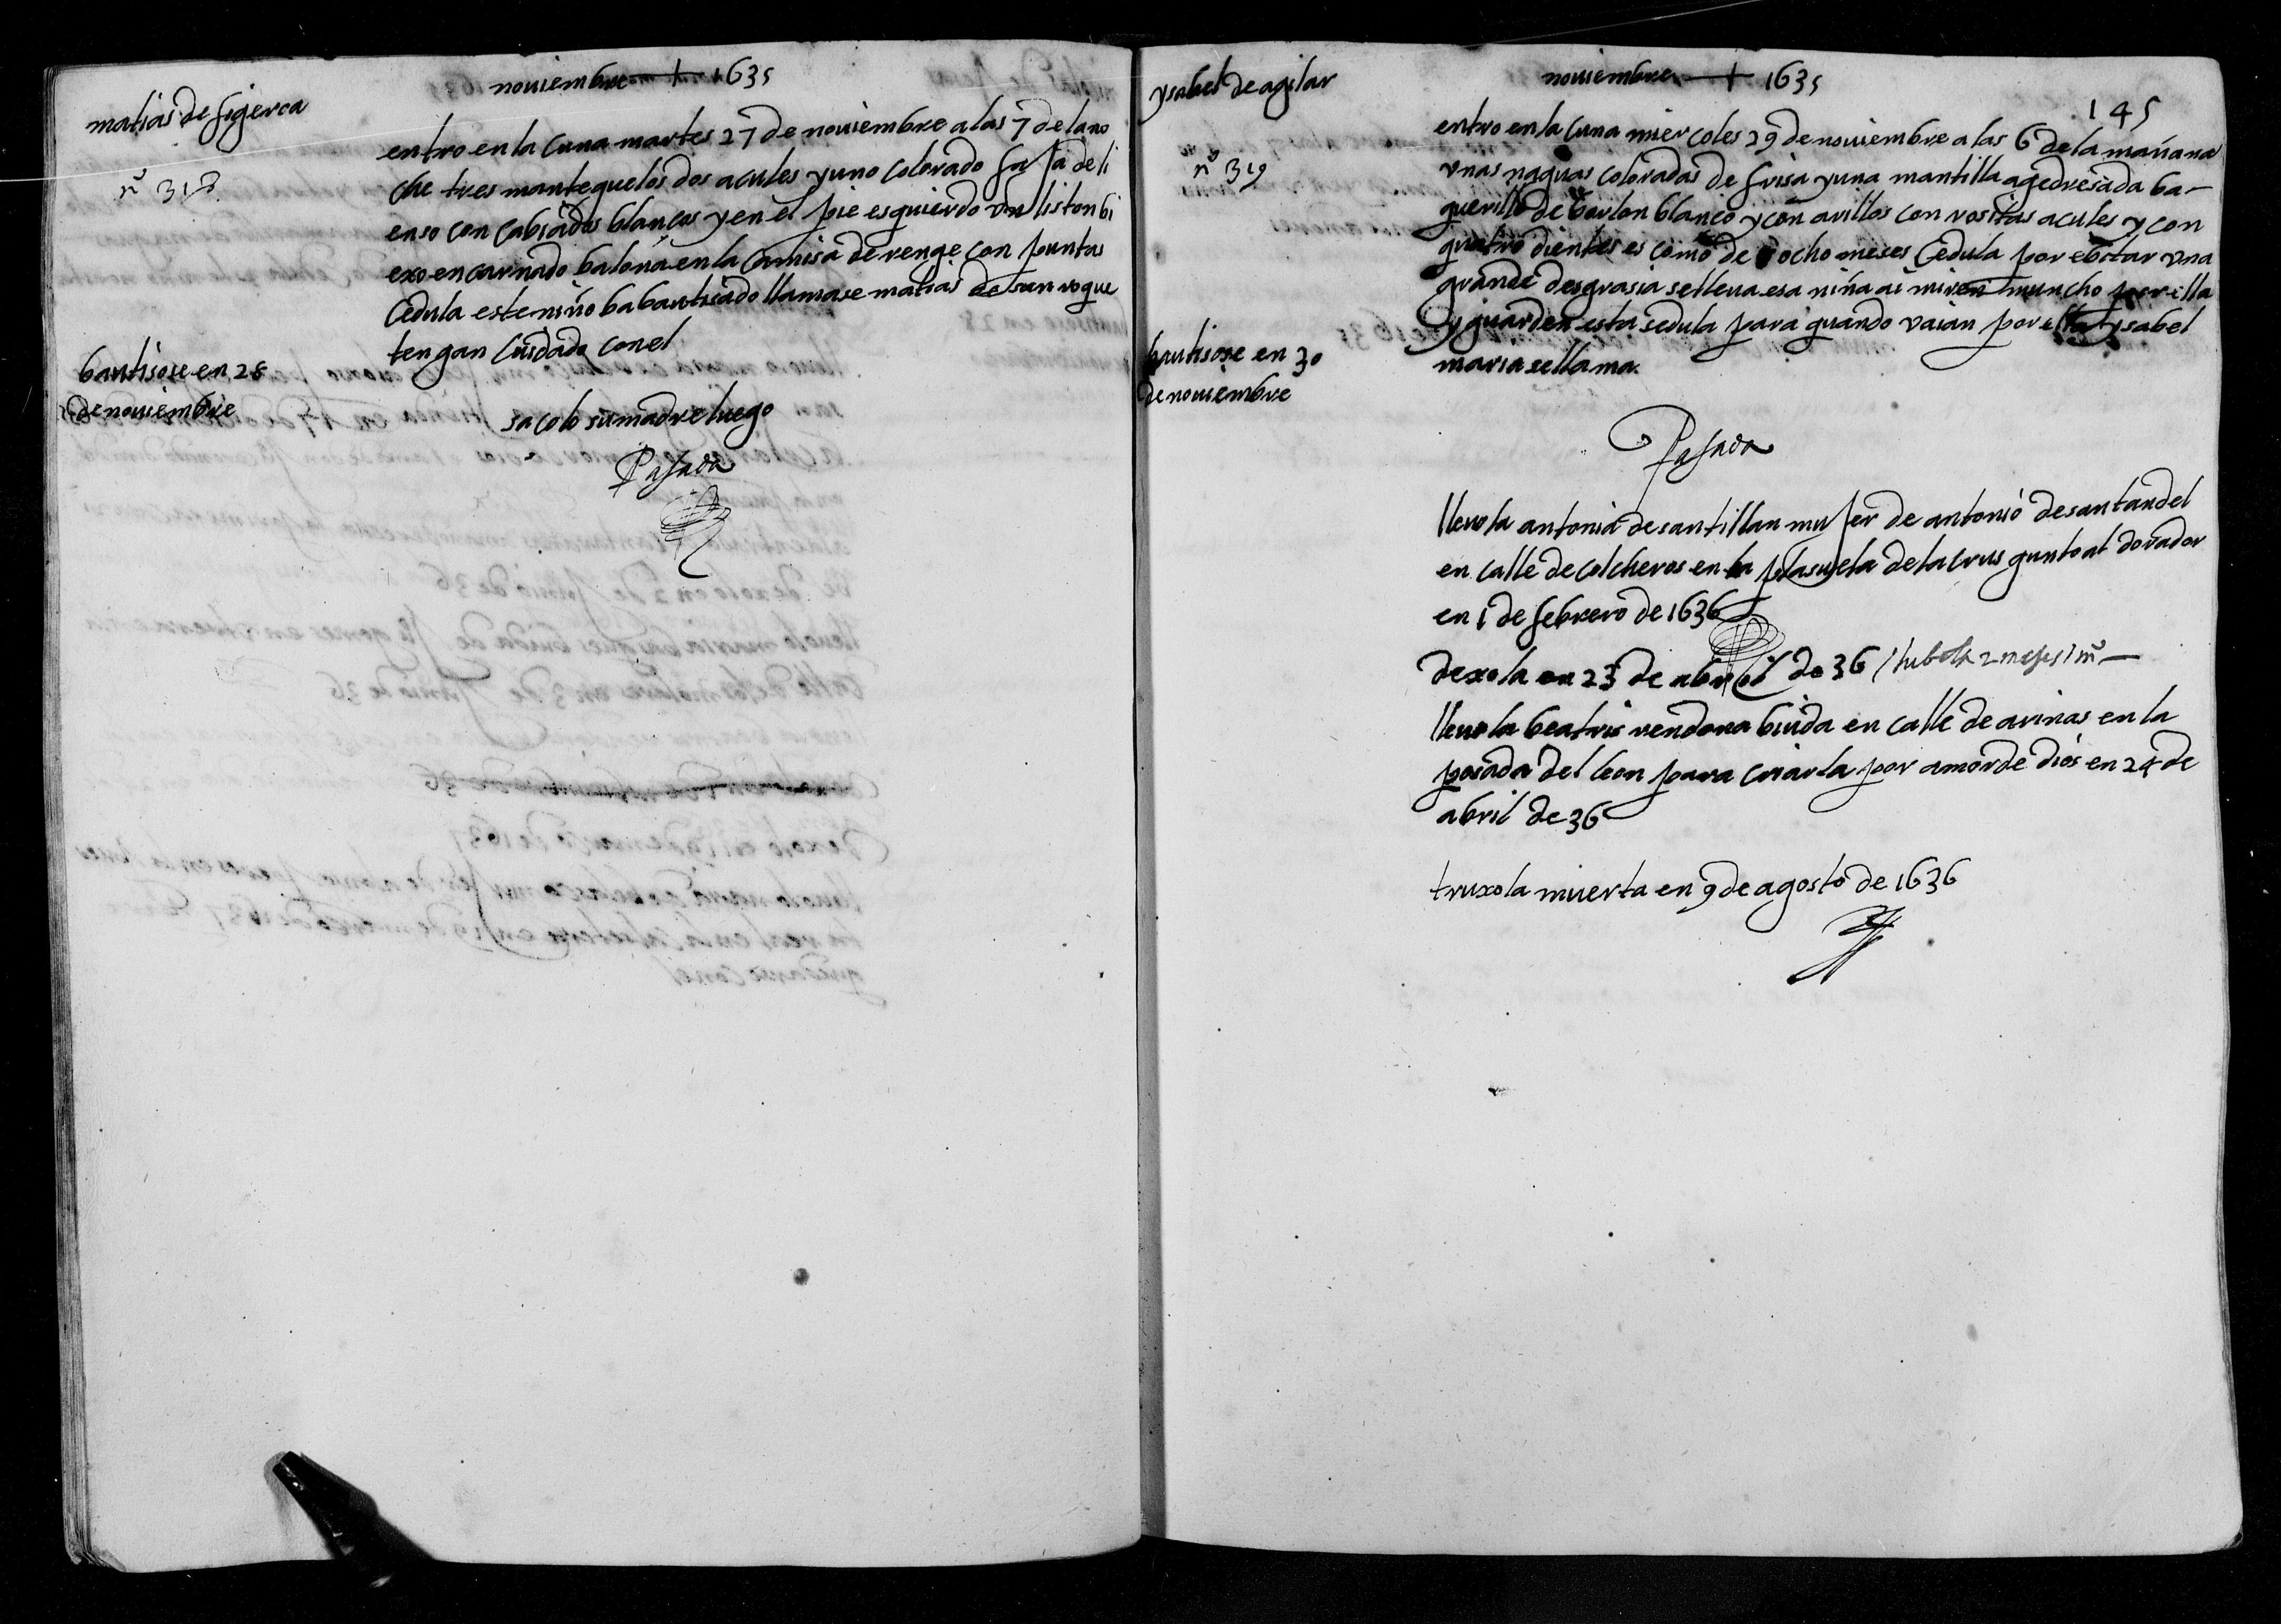 noviembre + 1635
matias de figerca
nº 318
entro en la cuna martes 27 de noviembre a las 7 de la no
che tres mantequelos dos acules y uno colorado faja de li
enso con cabiados blancos y en el pie esquierdo un liston bi
exo encarnado balona en la camisa de renge con puntas
cedula este niño ba bautisado llamase matias de san roque
tengan cuidado con el
bautisose en 28
de noviembre
sacolo su madre luego
Posada
noviembre + 1635
145
ysabel de agilar
nº 319
entro en la cuna miercoles 29 de noviembre a las 6 de la mañana
unas naguas coloradas de frisa y una mantilla agedresada ba-
querillo de borlon blanco y con arillos con rositas acules y con
quatro dientes es como de ocho meses cedula por ebitar una
grande desgrasia se lleva esa niña ai miren muncho por illa
y guarden esta sedula para quando vaian por ella ysabel
maria se llama.
bautisose en 30
de noviembre
Posada
llevola antonia de santillan mujer de antonio de santandel
en calle de colcheros en la plasuela de la crus gunto al dorador
en 1 de febrero de 1636
dexola en 23 de abril de 36 / tubola 2 meses 1 mº
llevola beatris rendona biuda en calle de arinas en la
posada del leon para criarla por amor de dios en 24 de
abril de 36
truxola muerta en 9 de agosto de 1636